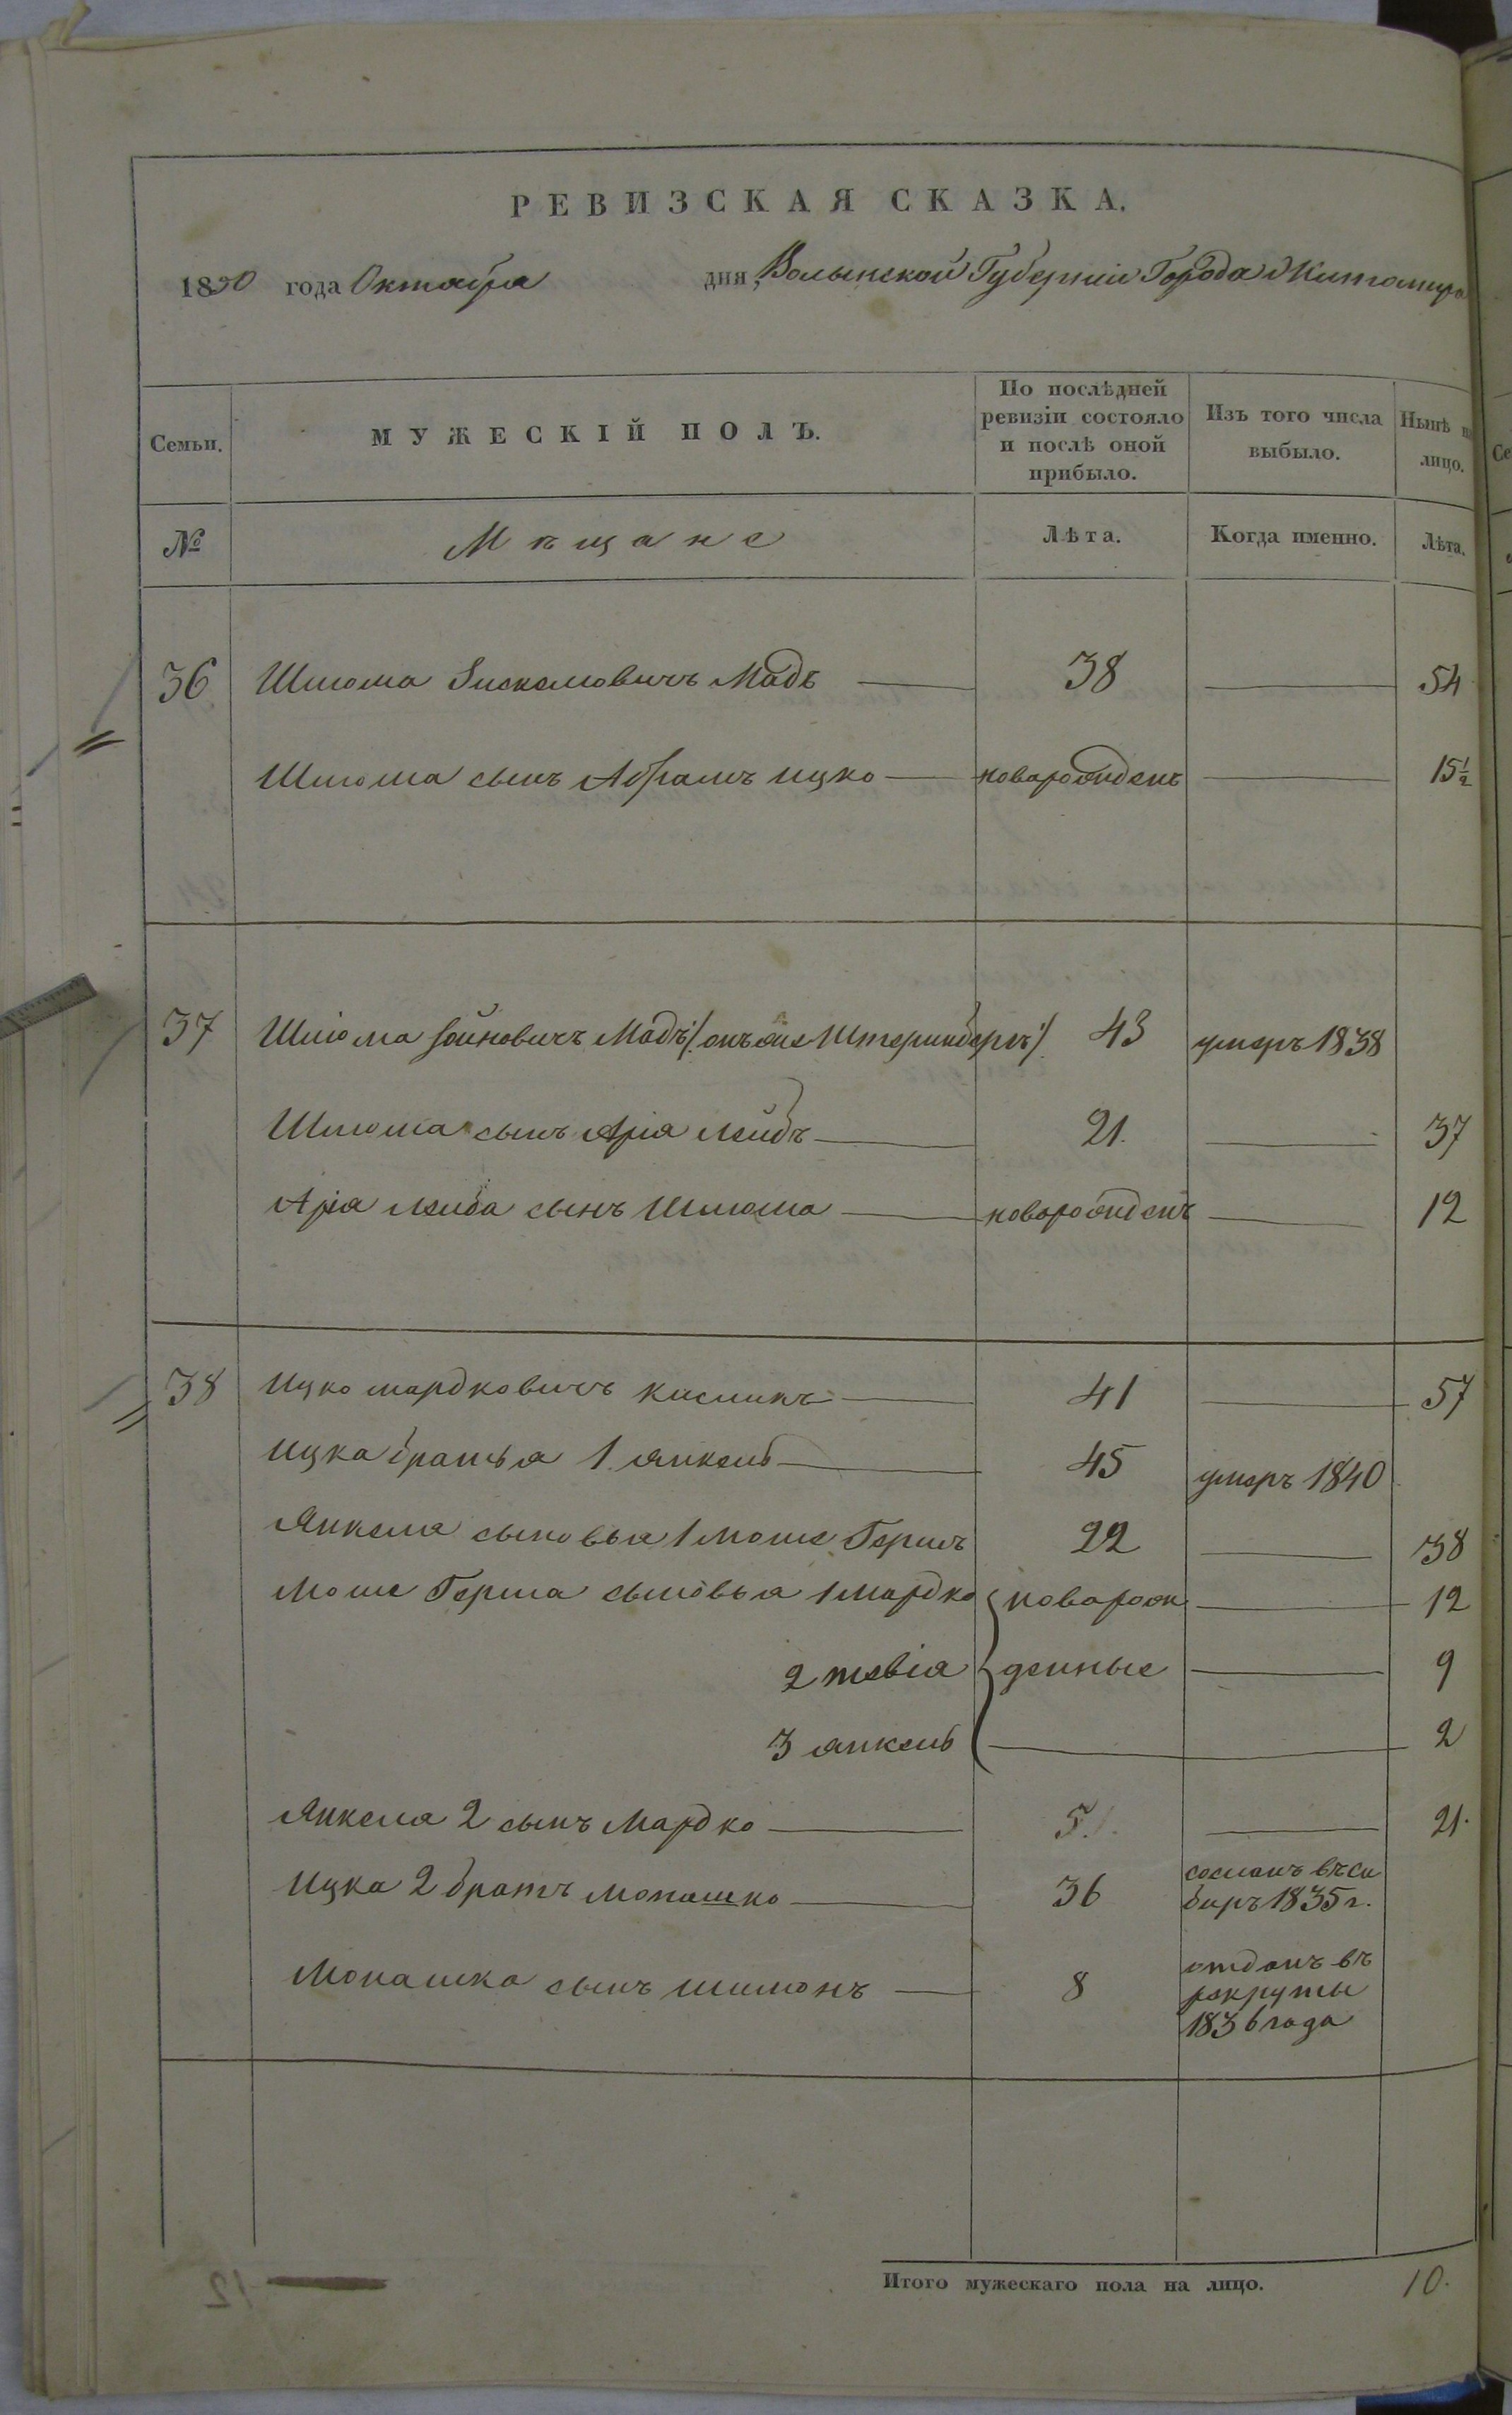 РЕВИЗСКАЯ СКАЗКА.
1850 года Октября дня, Волынской Губерніи Города Житомира
Семьи. МУЖЕСКІЙ ПОЛЪ. По послѣдней ревизіи состояло и послѣ оной прибыло. Изъ того числа выбыло. Нынѣ на лицо.
№ Мѣщане Лѣта. Когда именно. Лѣта.
36 Шлюома Мадъ 38 54
Шлюома сынъ Абрамъ ицко новорожденъ 15½
37 Шлюома Мадъ /: онъ же Штеринберъ :/ 43 умеръ 1838
Шлюома сынъ Арія Лейбъ 21. 37
Арія Лейба сынъ Шлюома новорожденъ 12
38 Ицко мардковичъ кисликъ 41 57
Ицка братья 1 янкель 45 умеръ 1840
Янкеля сыновья 1 Моше Гершъ 22 38
Моше Герша сыновья 1 мардко новорож 12
2 тевіа денные 9
3 янкель 2
Янкеля 2 сынъ Мардко 5. 21.
Ицка 2 братъ монашко 36 сосланъ въ си
биръ 1835 г.
Монашка сынъ шимонъ 8 отданъ въ
рекруты
1836 года
Итого мужескаго пола на лицо. 10.